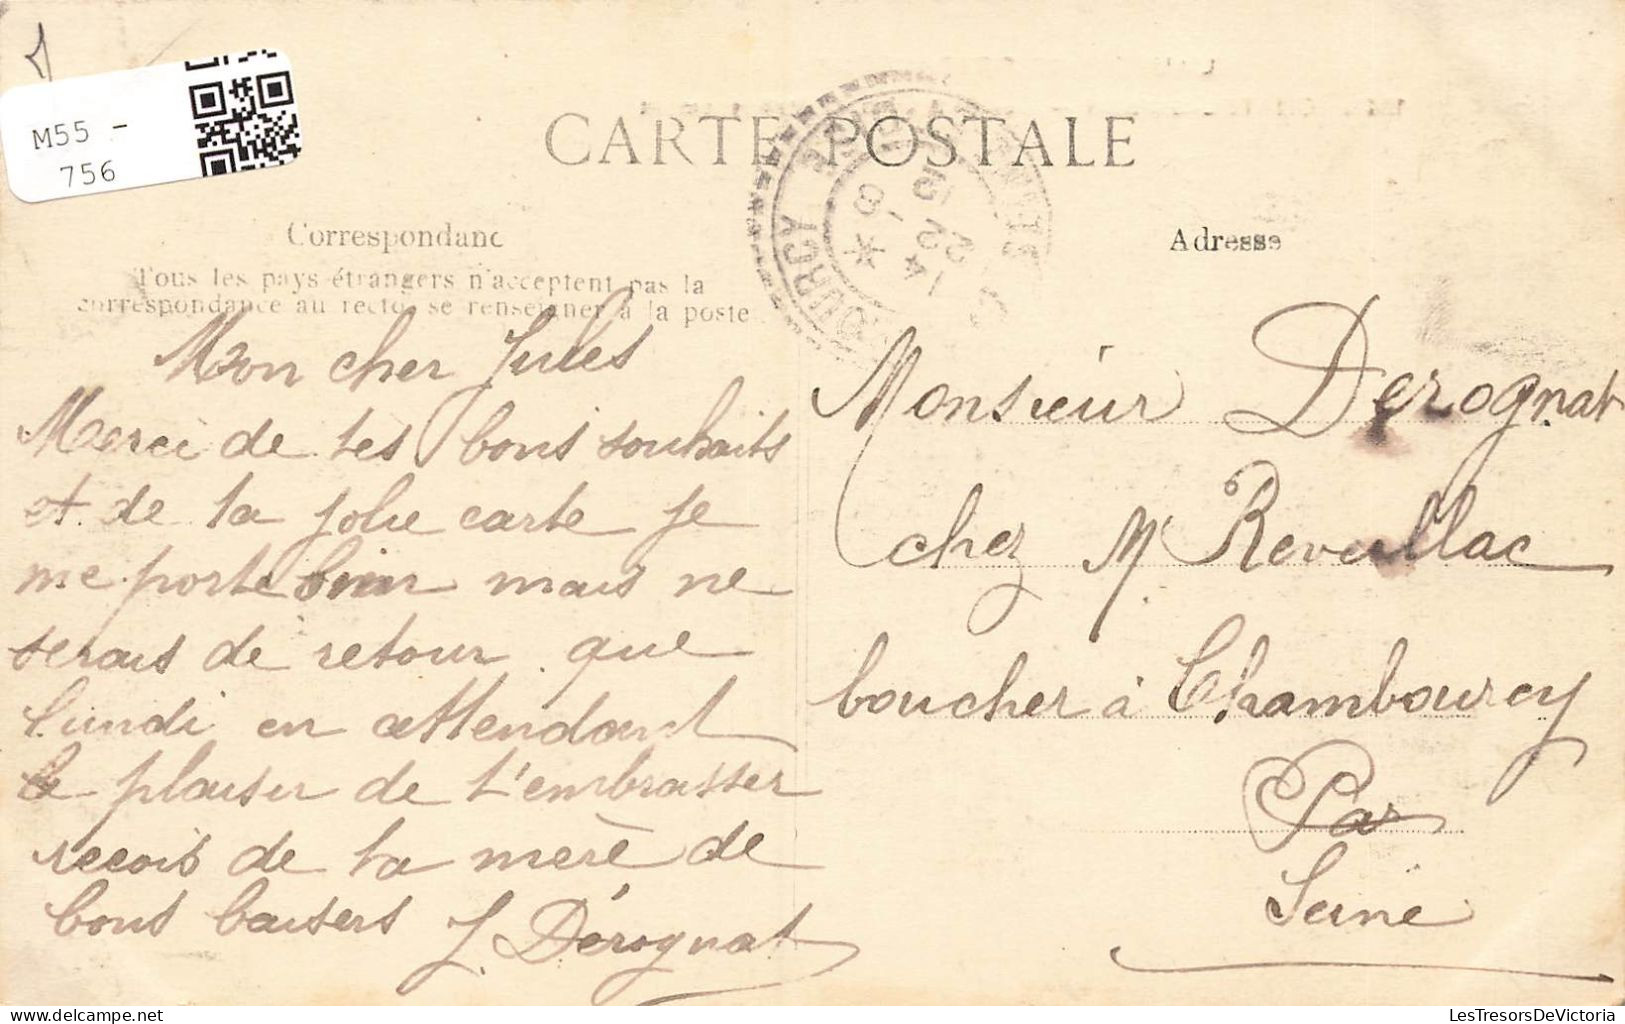 M55 -
756
CARTE POSTALE
Correspondanc
Tous les pays étrangers n'acceptent pas la
correspondance au recto, se renseigner à la poste
Adresse
Mon cher Jules
Merci de tes bons souhaits
et de ta jolie carte je
me porte bien mais ne
serais de retour que
lundi en attendant
le plaisir de t'embrasser
recois de ta merè de
bons baisers J. Dérognat
Monsieur Derognat
chez Mr Reveillac
boucher à Chambourcy
Par
Seine
LesTresorsDeVictoria
www.delcampe.net